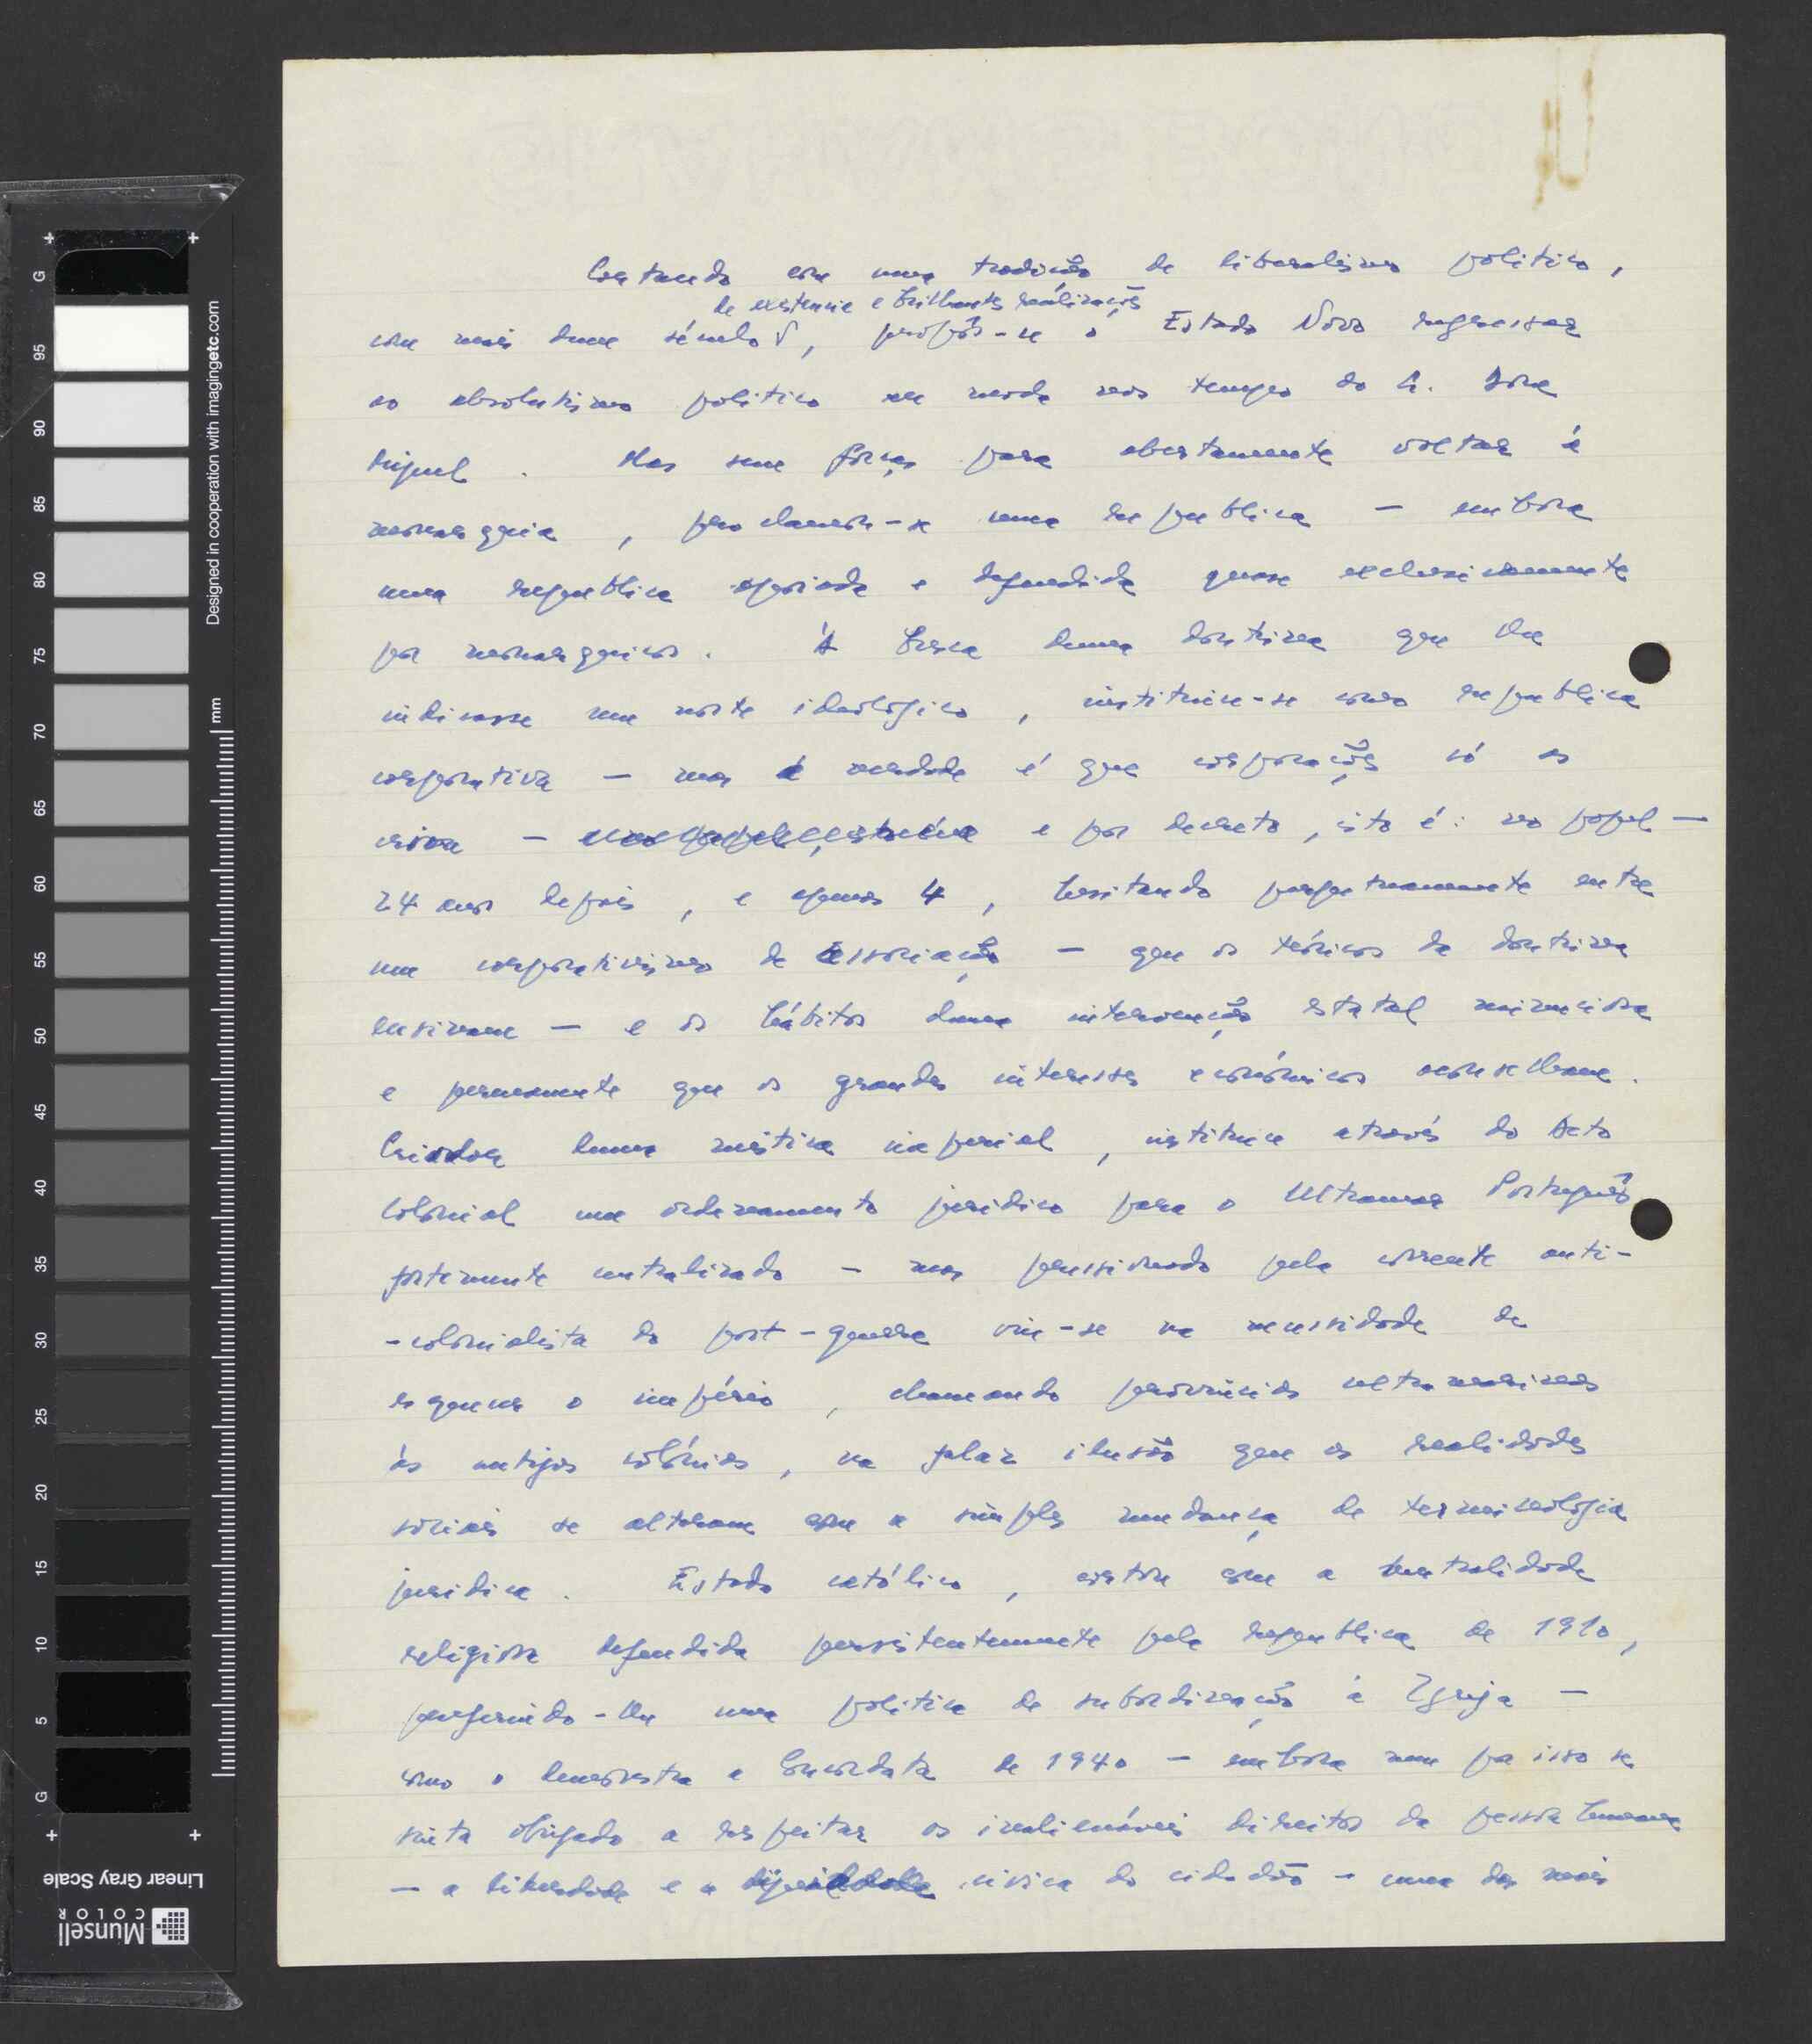 Cortando com uma tradição de liberalismo politico,
de existencia e brilhantes realizações
com mais dum século, propôs-se o Estado Novo regressar
ao absolutismo politico em moda nos tempos do S. Dom
Miguel. Mas sem forças para abertamente voltar á
monarquia, proclamou-se uma republica — embora
uma republica apoiada e defendida quase exclusivamente
por monarquicos. Á busca duma doutrina que lhe
indicasse um norte ideologico, instituiu-se como republica
corporativa — mas a verdade é que corporações só as
criou — e por decreto, isto é: no papel —
24 anos depois, e apenas 4, hesitando perpetuamente entre
um corporativismo de associação — que os teóricos da doutrina
ensinam — e os hábitos duma intervenção estatal minuciosa
e permanente que os grandes interesses económicos aconselham.
Criador duma mistica imperial, instituiu através do Acto
Colonial um ordenamento juridico para o Ultramar Português
fortemente centralizado — mas pressionado pela corrente anti-
-colonialista do post-guerra viu-se na necessidade de
esquecer o império, chamando provincias ultramarinas
às antigas colónias, na falaz ilusão que as realidades
sociais se alteram com a simples mudança de terminologia
juridica. Estado católico, cortou com a neutralidade
religiosa defendida persistentemente pela republica de 1910,
preferindo-lhe uma politica de subordinação à Igreja —
como o demonstra a Concordata de 1940 — embora nem por isso se
sinta obrigado a respeitar os inalienáveis direitos da pessoa humana
— a liberdade e a dignidade civica do cidadão — uma das mais